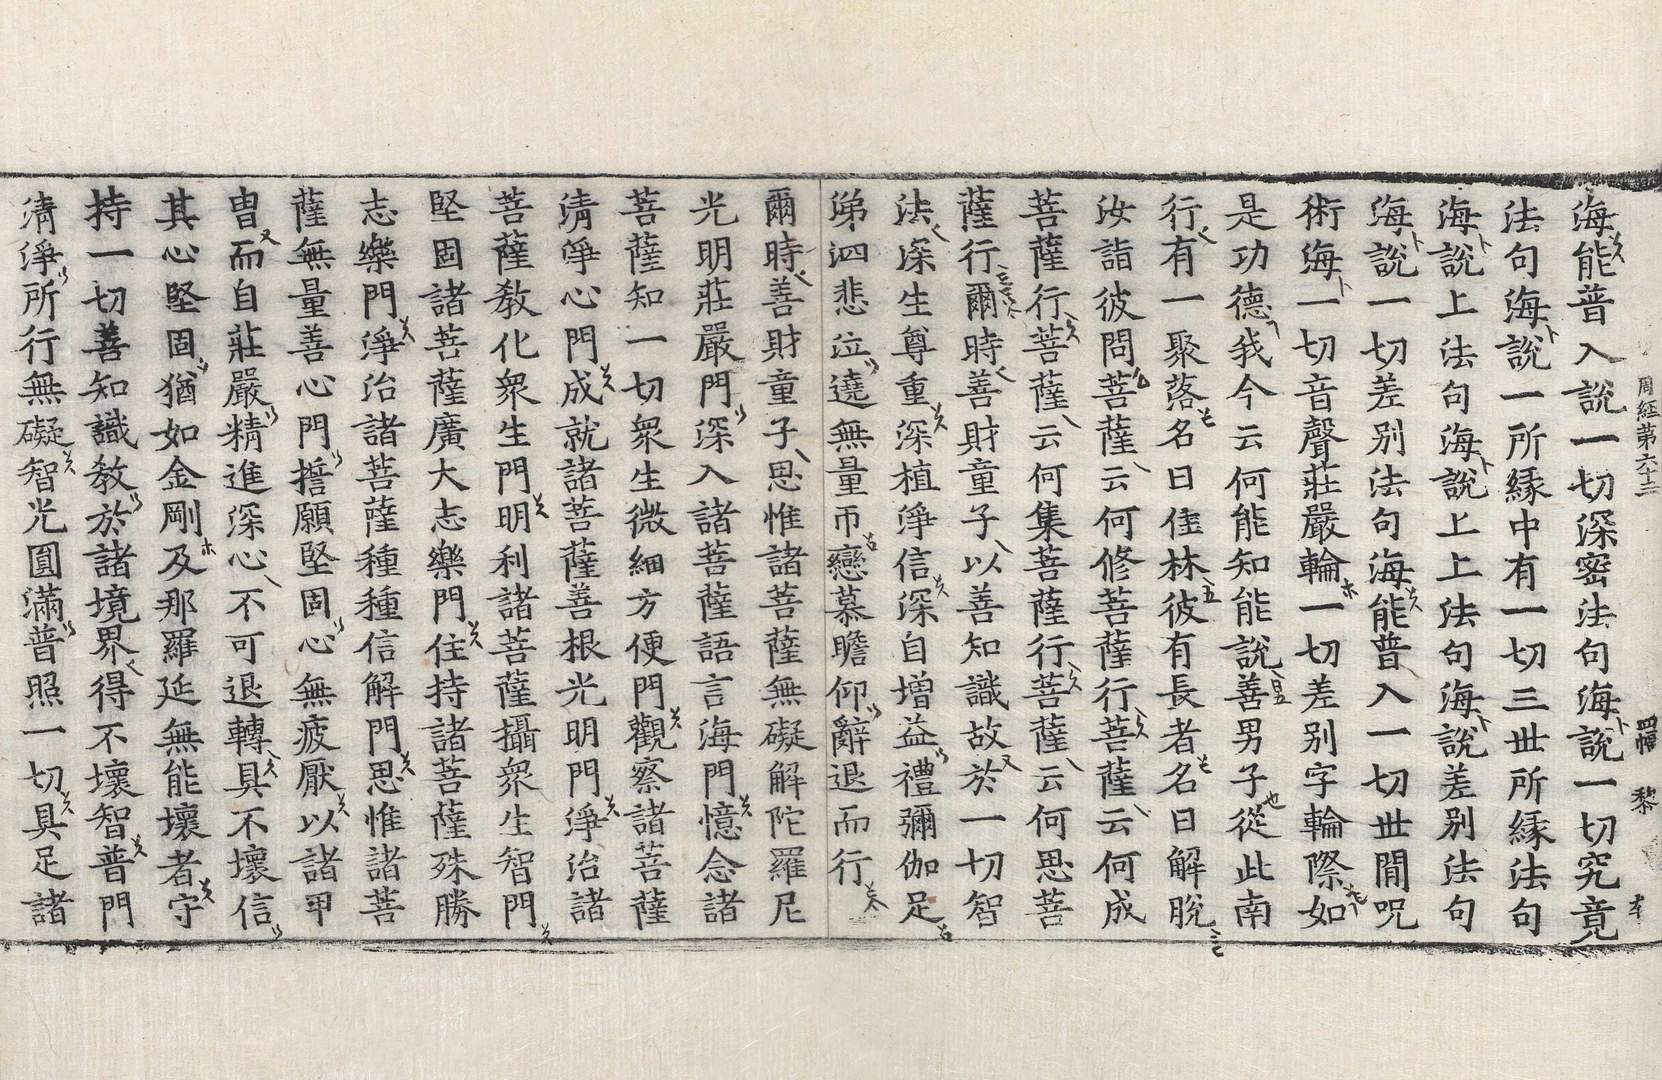 周經第六十三 四幅 黎
海能普入說一切深密法句海說一切究竟
法句海說一所緣中有一切三世所緣法句
海說上法句海說上上法句海說差別法句
海說一切差別法句海能普入一切世間呪
術海一切音聲莊嚴輪一切差別字輪際如
是功德我今云何能知能說善男子從此南
行有一聚落名曰住林彼有長者名曰解脫
汝詣彼問菩薩云何修菩薩行菩薩云何成
菩薩行菩薩云何集菩薩行菩薩云何思菩
薩行爾時善財童子以善知識故於一切智
法深生尊重深植淨信深自增益禮彌伽足
涕泗悲泣遶無量帀戀慕瞻仰辭退而行
爾時善財童子思惟諸菩薩無礙解陀羅尼
光明莊嚴門深入諸菩薩語言海門憶念諸
菩薩知一切眾生微細方便門觀察諸菩薩
清淨心門成就諸菩薩善根光明門淨治諸
菩薩教化眾生門明利諸菩薩攝眾生智門
堅固諸菩薩廣大志樂門住持諸菩薩殊勝
志樂門淨治諸菩薩種種信解門思惟諸菩
薩無量善心門誓願堅固心無疲厭以諸甲
冑而自莊嚴精進深心不可退轉具不壞信
其心堅固猶如金剛及那羅延無能壞者守
持一切善知識教於諸境界得不壞智普門
清淨所行無礙智光圓滿普照一切具足諸